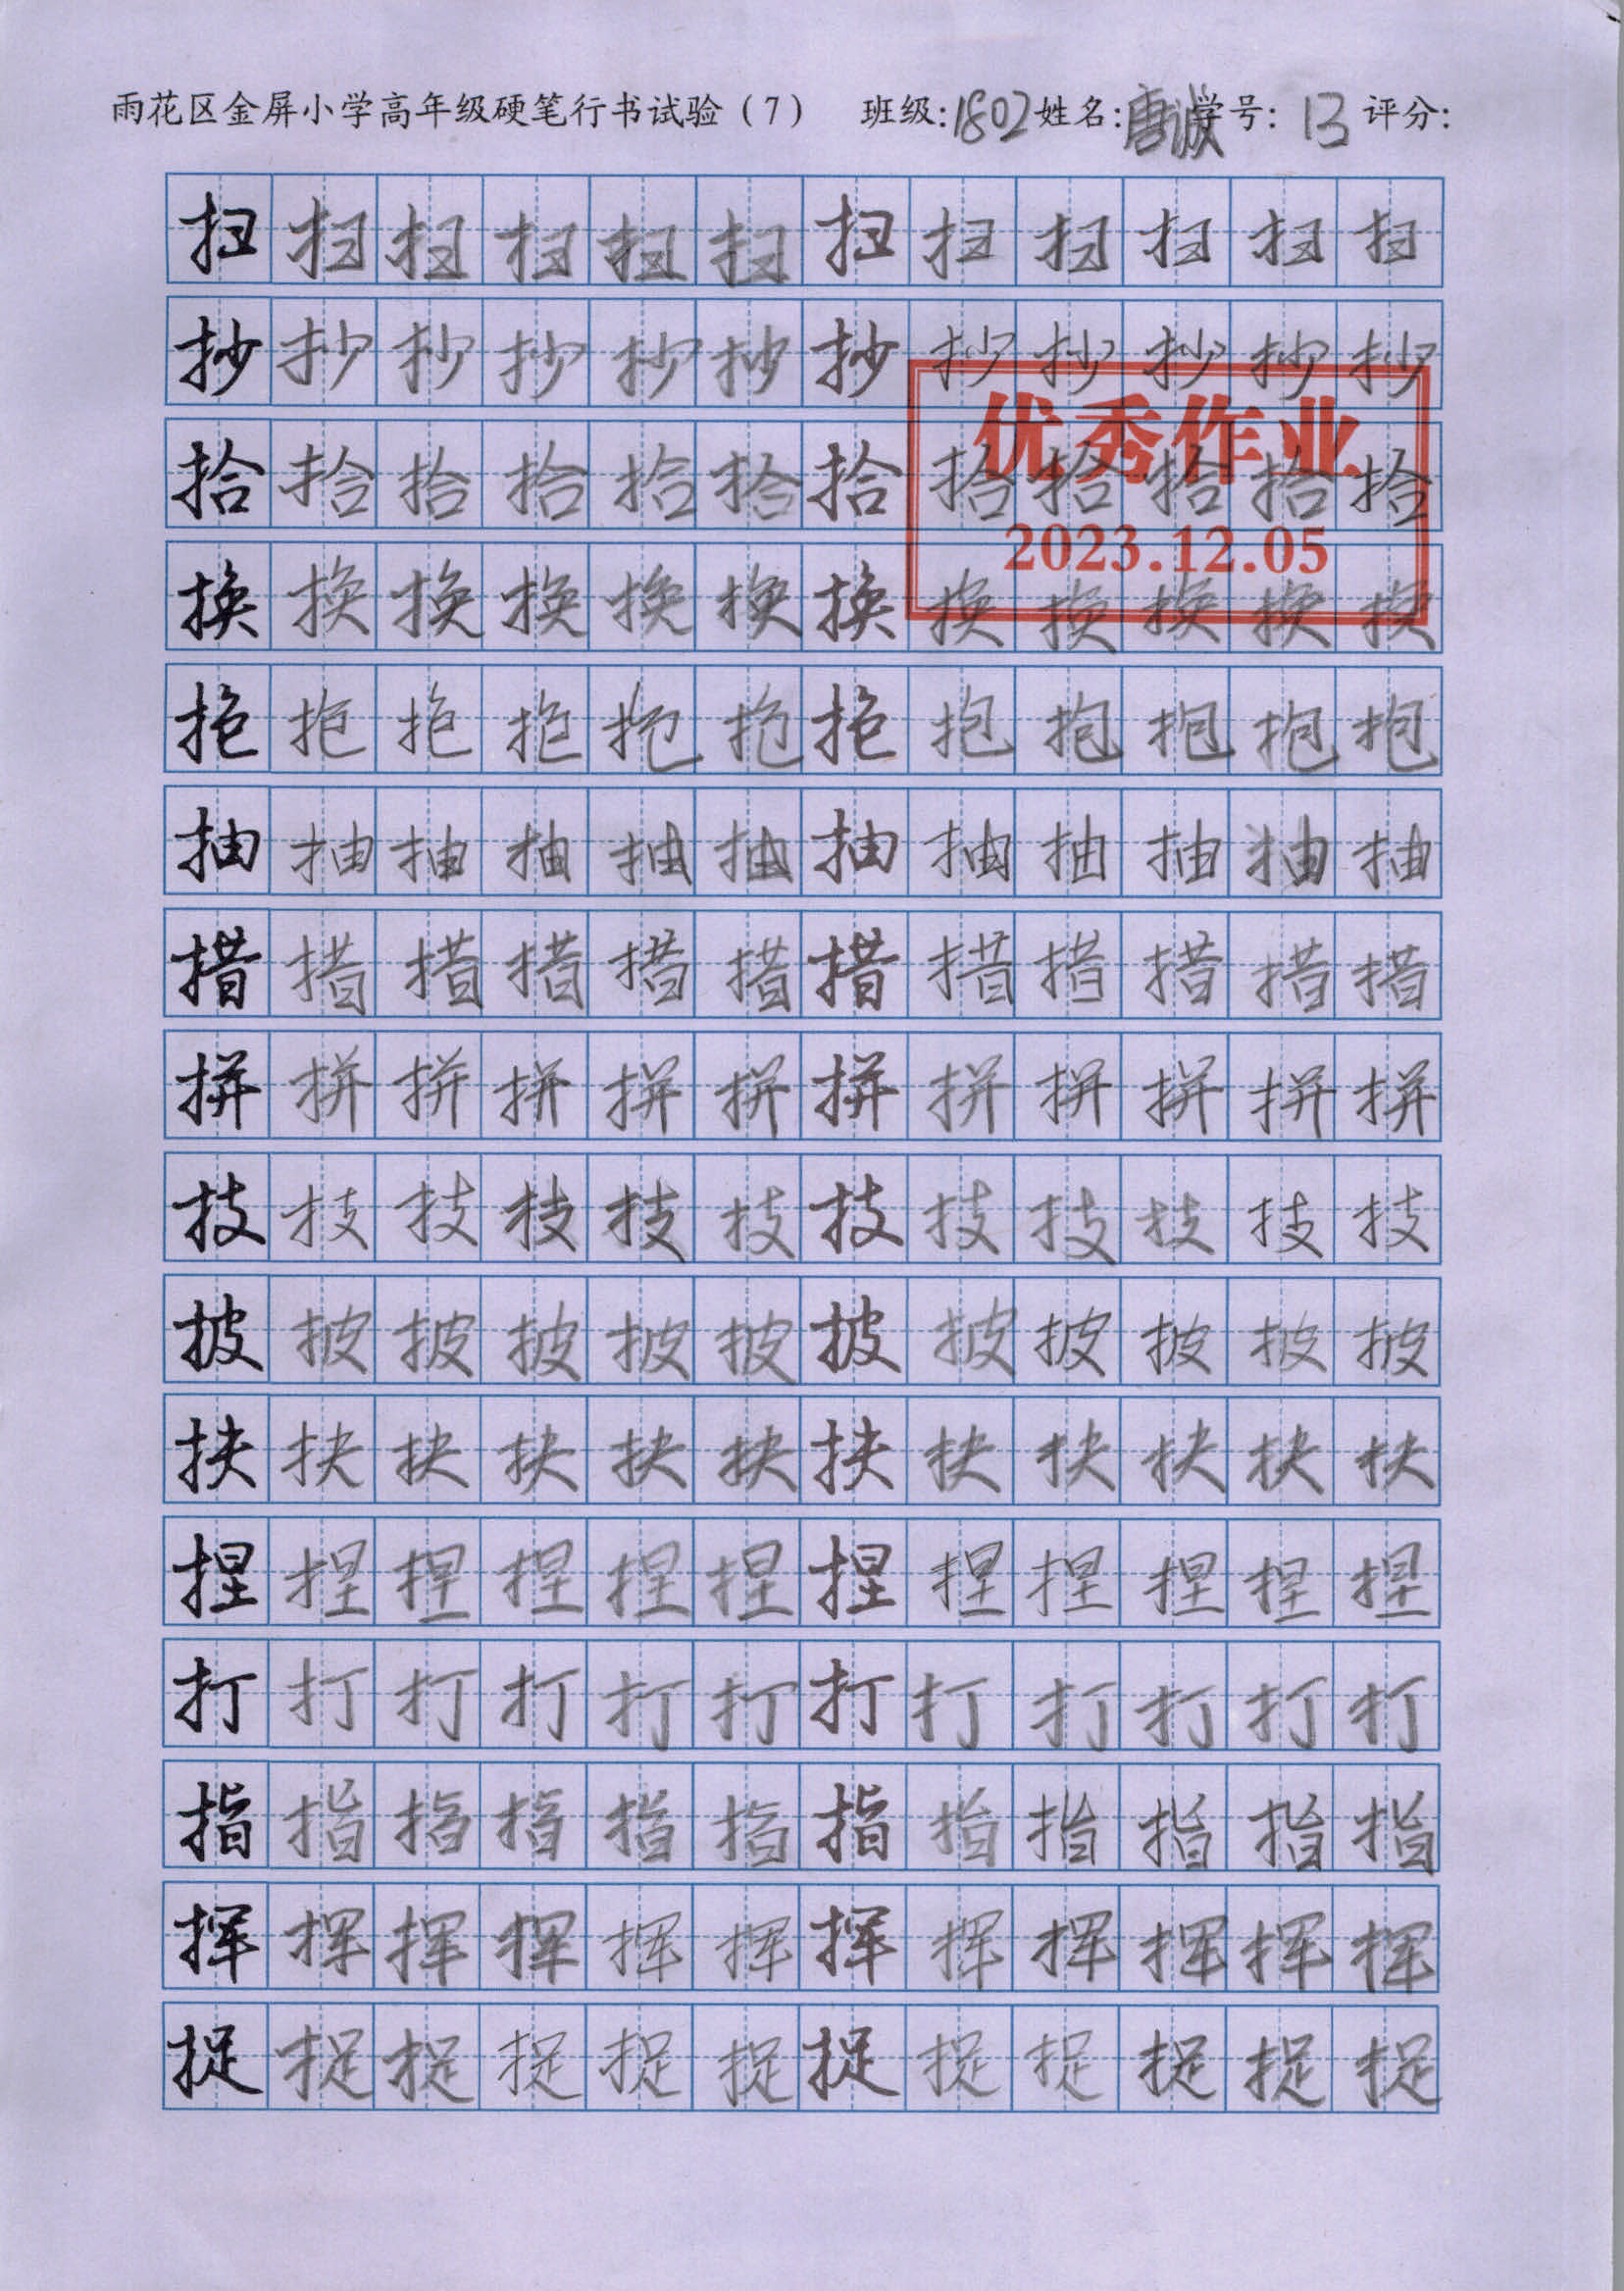 雨花区金屏小学高年级硬笔行书试验（7） 班级:1802 姓名:唐 学号:13 评分:
扫扫扫扫扫扫扫扫扫扫扫扫
抄抄抄抄抄抄抄抄抄抄抄抄
优秀作业
拾拾拾拾拾拾拾拾拾拾拾拾
2023.12.05
换换换换换换换换换换换换
抱抱抱抱抱抱抱抱抱抱抱抱
抽抽抽抽抽抽抽抽抽抽抽抽
措措措措措措措措措措措措
拼拼拼拼拼拼拼拼拼拼拼拼
技技技技技技技技技技技技
披披披披披披披披披披披披
扶扶扶扶扶扶扶扶扶扶扶扶
捏捏捏捏捏捏捏捏捏捏捏捏
打打打打打打打打打打打打
指指指指指指指指指指指指
挥挥挥挥挥挥挥挥挥挥挥挥
捉捉捉捉捉捉捉捉捉捉捉捉